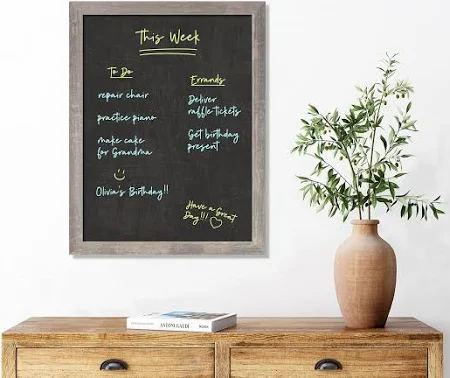 This Week
To Do
repair chair
practice piano
make cake
for Grandma
Olivia's Birthday!!
Errands
Deliver
raffle tickets
Get birthday
present
Have a Great
Day!!!
ANTONI GAUDI